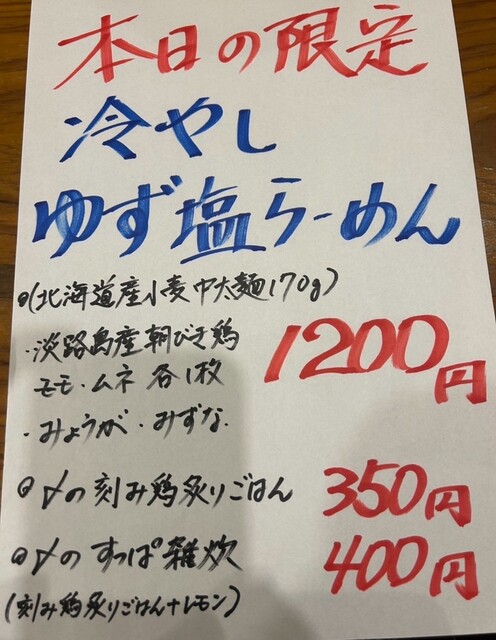 本日の限定
冷やし
ゆず塩らーめん
◎(北海道産小麦中太麺170g)
・淡路島産朝びき鶏
モモ・ムネ 各1枚
1200円
・みょうが・みずな
◎〆の刻み鶏炙りごはん 350円
◎〆のすっぱ雑炊 400円
(刻み鶏炙りごはん+レモン)